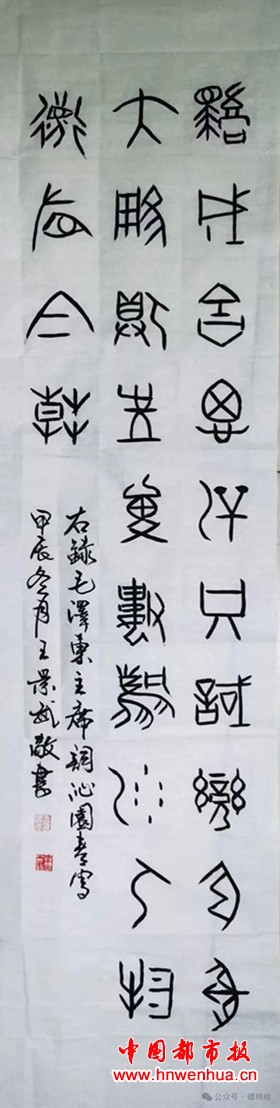 成吉思汗只識彎弓射
大雕俱往矣數風流人物
還看今朝
右錄毛澤東主席詞沁園春雪
甲辰冬月王景敬書
中国都市报
www.hnwenhua.cn
公众号